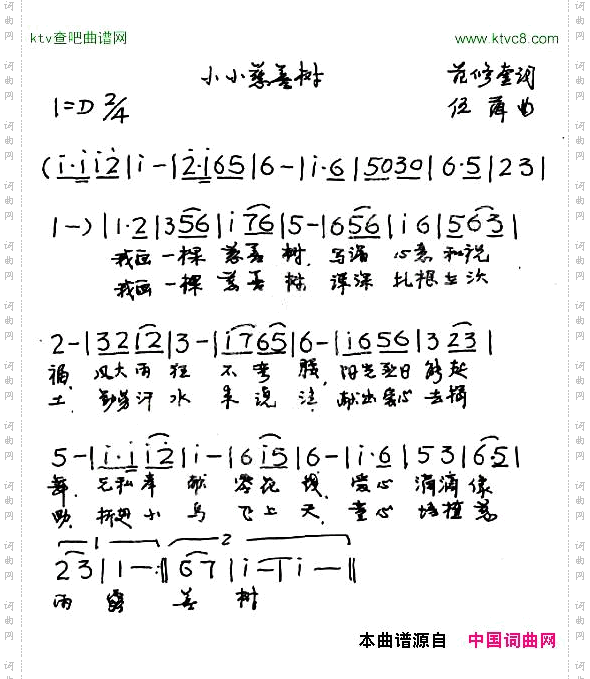 ktv查吧曲谱网 www.ktvc8.com
小小慈善树
范修奎词
1=D 2/4
伍萍曲
(i·i i2|i-|2·i65|6-|i·6|5030|6·5|23|
1-)|1·2|356|i76|5-|656|i6|563|
我画一棵 慈善树, 写满 心意和祝
我画一棵 慈善树 深深 扎根
2-|3212|3-|i765|6-|i656|323|
福, 风大雨狂 不弯腰, 阳光 能起
土, 勤劳汗水 来浇注, 献出爱心去捐
5-|i·i i2|i-|6i5|6-|i·6|53|6·5|
舞, 无私奉献 花 爱心滴滴像
助, 小鸟飞上天, 童心 慈
1 2
23|1-:‖67|i-|i-‖
雨露 善树
本曲谱源自 中国词曲网
词曲网